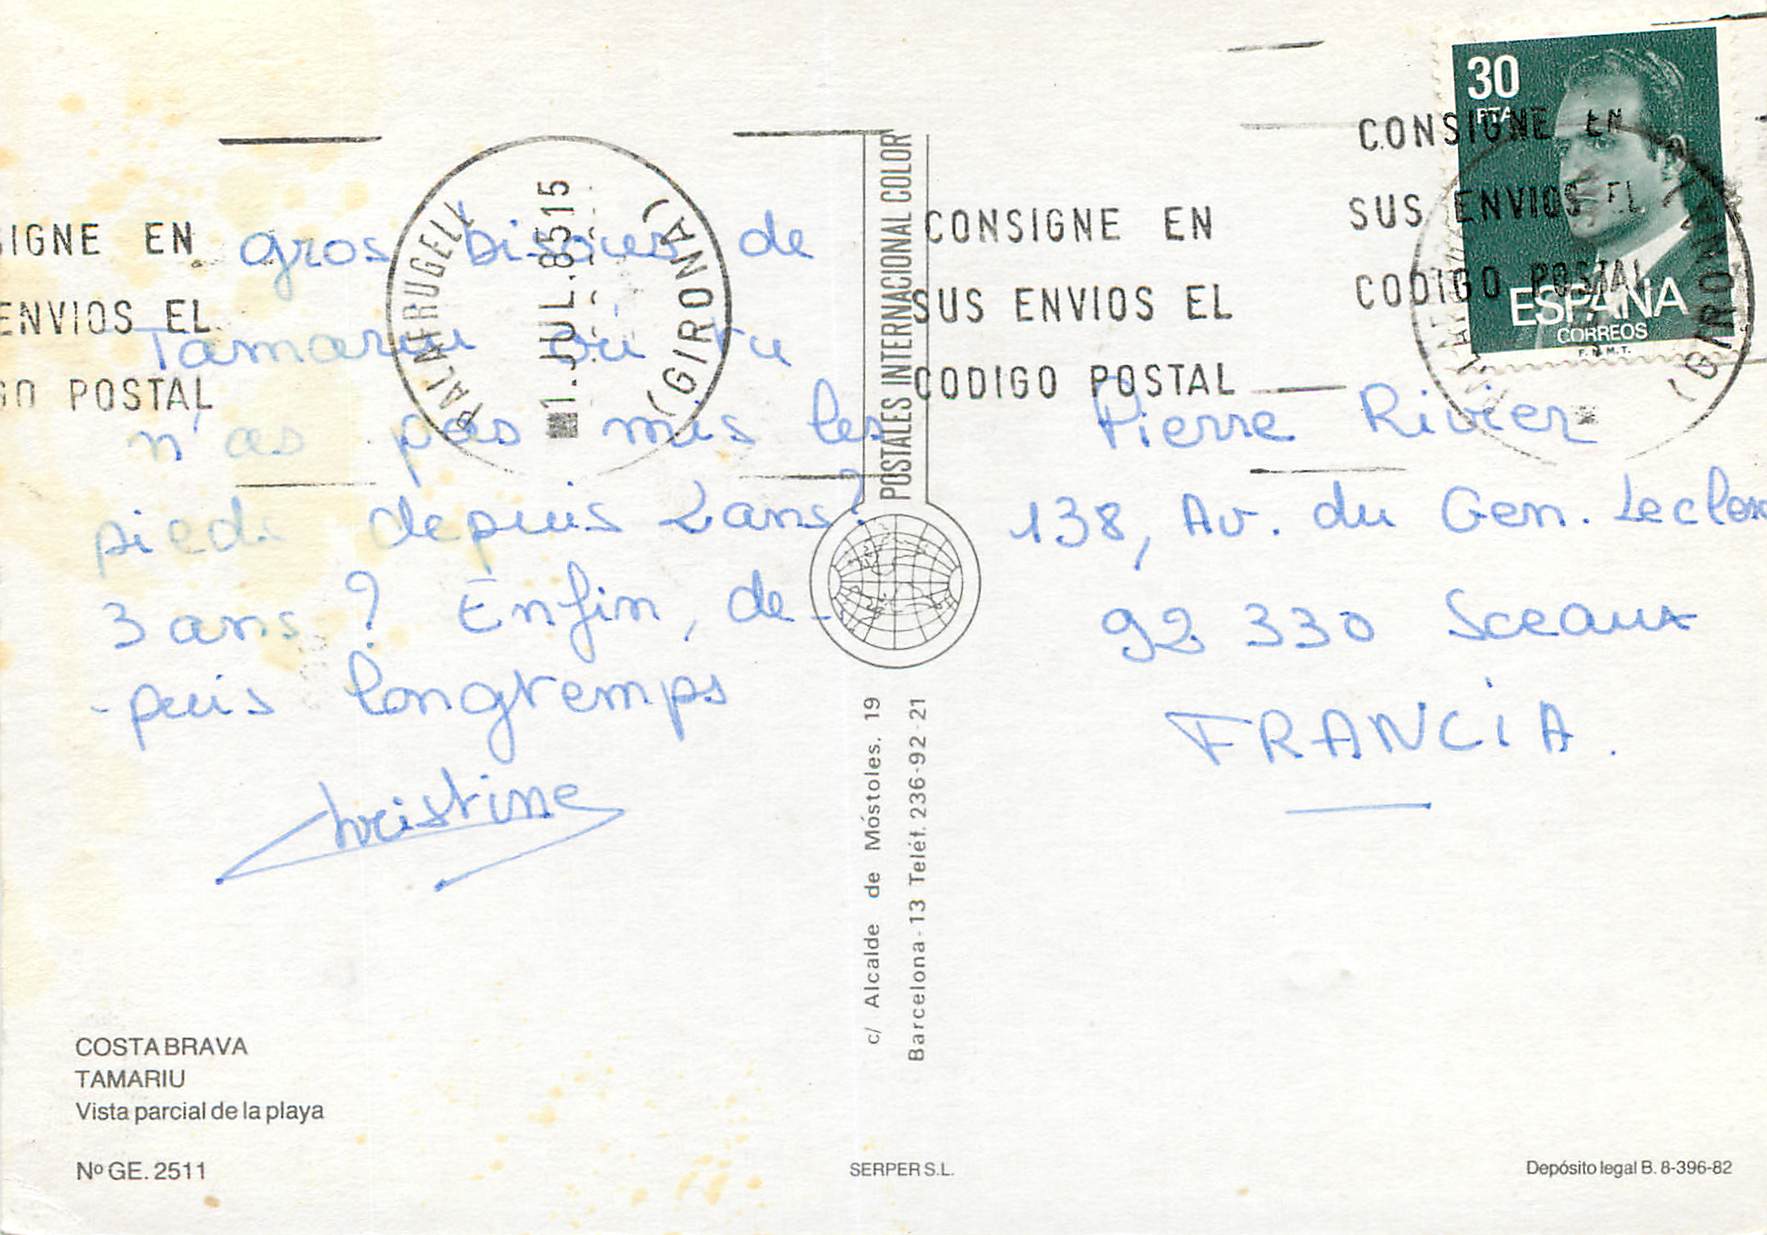 gros bisous de
Tamariu où tu
n'as pas mis les
pieds depuis 2 ans?
3 ans ? Enfin, de-
-puis longtemps
Christine
COSTA BRAVA
TAMARIU
Vista parcial de la playa
Nº GE. 2511
SERPER S.L.
Depósito legal B. 8-396-82
POSTALES INTERNACIONAL COLOR
c/ Alcalde de Móstoles. 19
Barcelona - 13 Teléf. 236-92-21
Pierre Rivier
138, Av. du Gen. Leclerc
92 330 Sceaux
FRANCiA.
30
PTA
ESPAÑA
CORREOS
F.N.M.T.
CONSIGNE EN
SUS ENVIOS EL
CODIGO POSTAL
CONSIGNE EN
SUS ENVIOS EL
CODIGO POSTAL
SIGNE EN
ENVIOS EL
GO POSTAL
PALAFRUGELL
1. JUL. 85 15
(GIRONA)
(GIRONA)